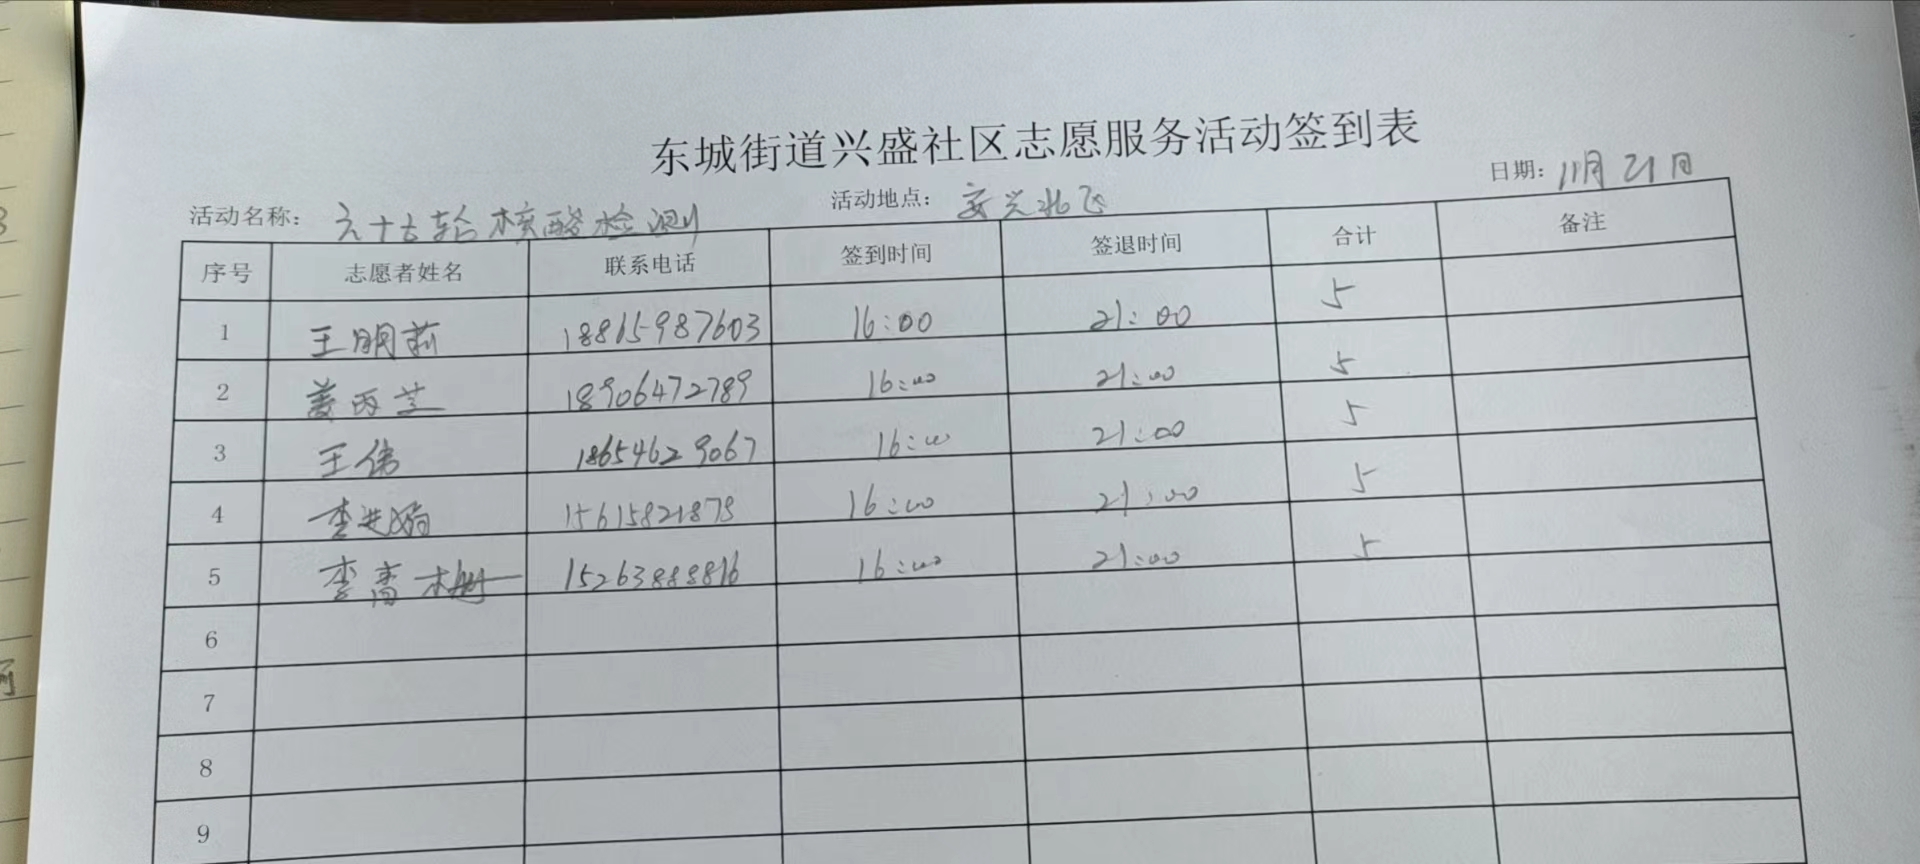 东城街道兴盛社区志愿服务活动签到表
活动名称: 六十七轮核酸检测 活动地点: 安兴北区 日期: 11月21日
序号 志愿者姓名 联系电话 签到时间 签退时间 合计 备注
1 王明莉 18865987603 16:00 21:00 5
2 姜丙芝 18906472789 16:00 21:00 5
3 王伟 18654629067 16:00 21:00 5
4 李 15615821878 16:00 21:00 5
5 李 15263888816 16:00 21:00 5
6
7
8
9